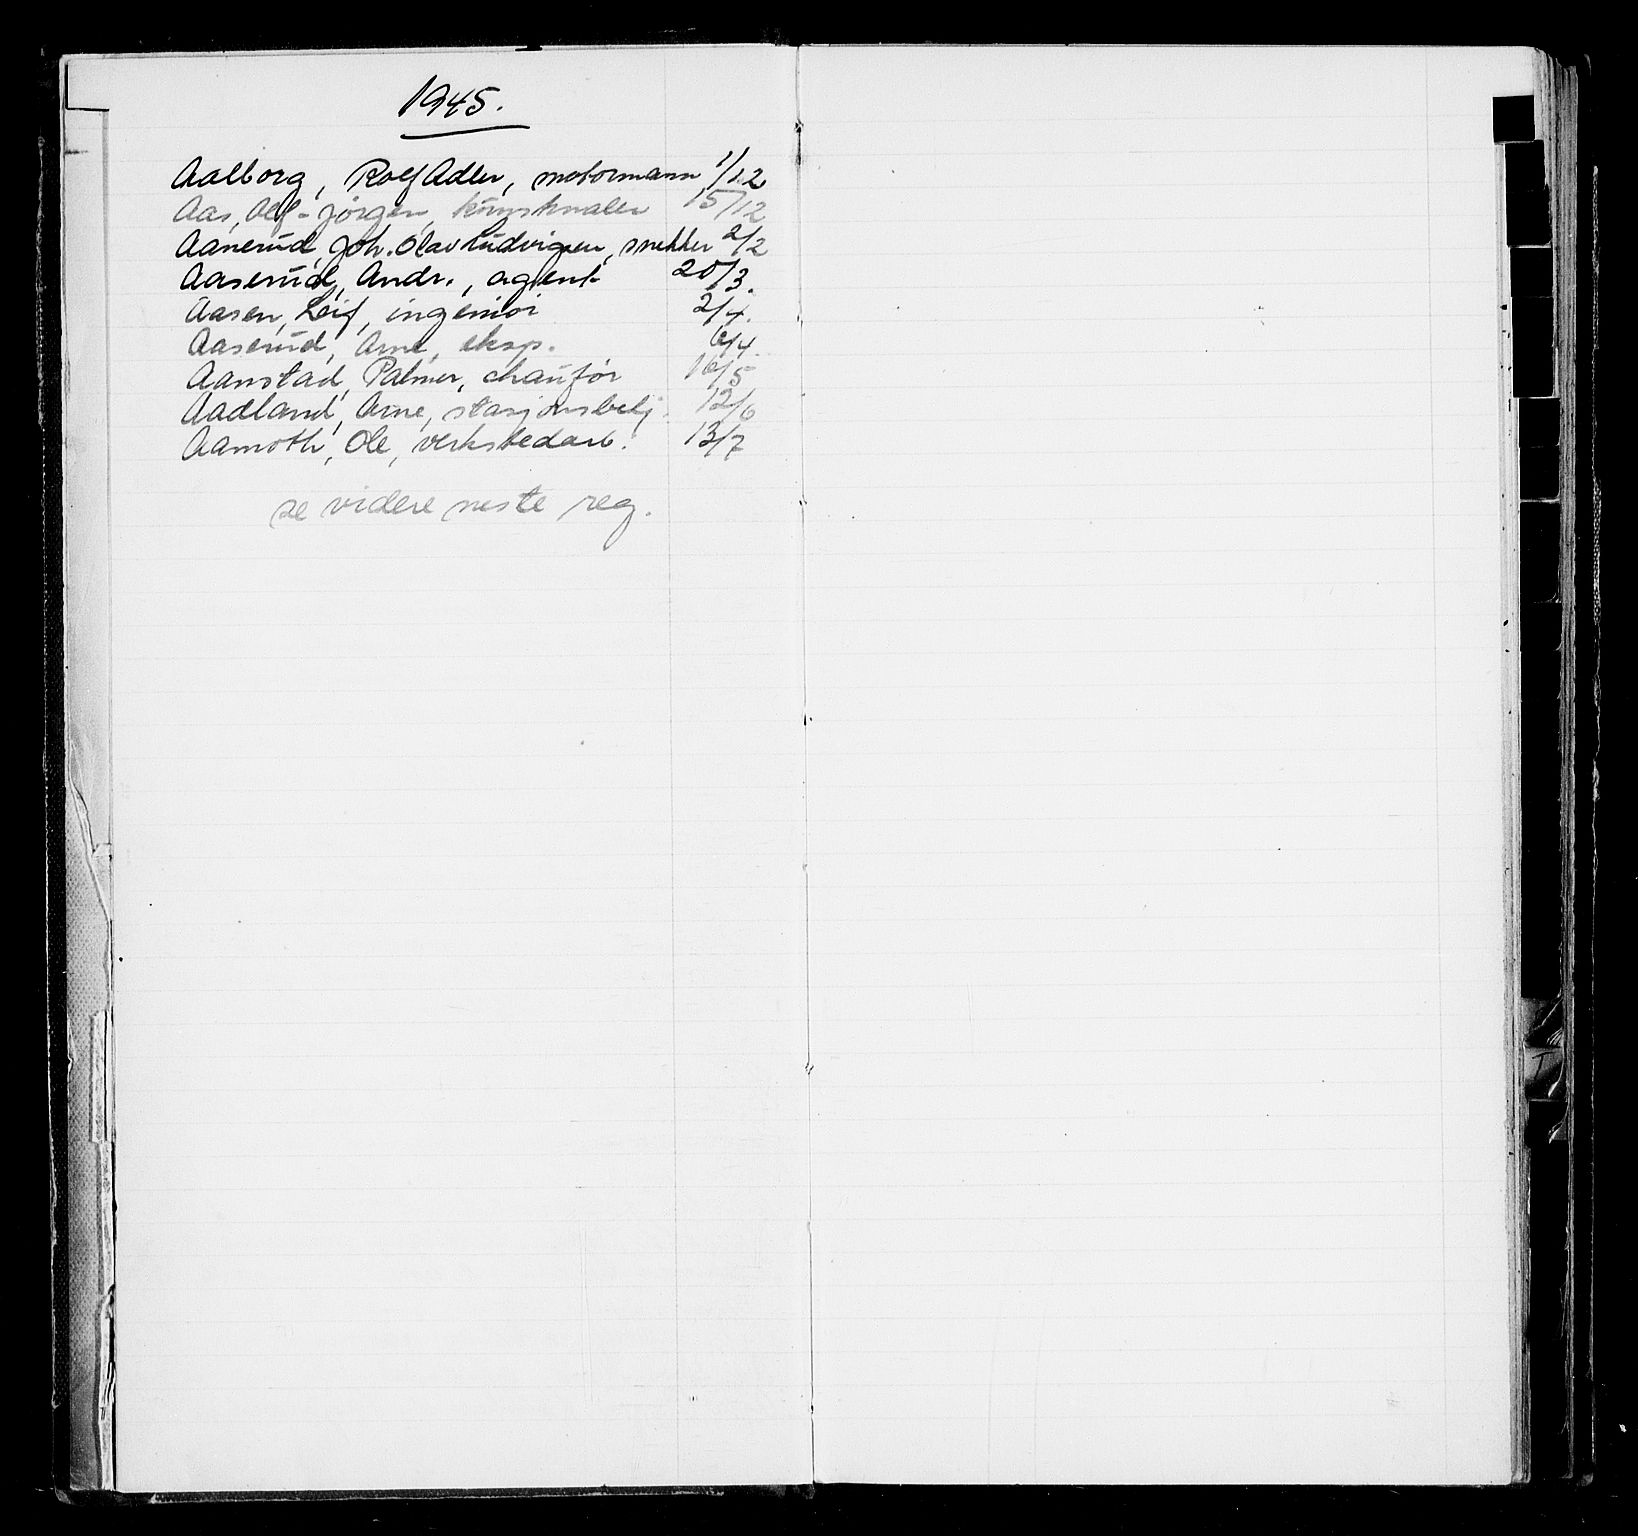 1945.
Aalborg, Rolf Adler, motormann 1/12
Aas, Alf-Jørgen, kunstmaler 15/12
Aanerud, Joh. Olav Ludvigsen, snekker 2/2
Aaserud, Andr., agent 20/3.
Aasen, Leif, ingeniør 2/4.
Aaserud, Arne, eksp. 6/4.
Aanstad, Palmer, chaufför 16/5
Aadland, Arne, stasjonsbetj. 12/6
Aamoth, Ole, verkstedarb. 13/7
se videre neste reg.
T